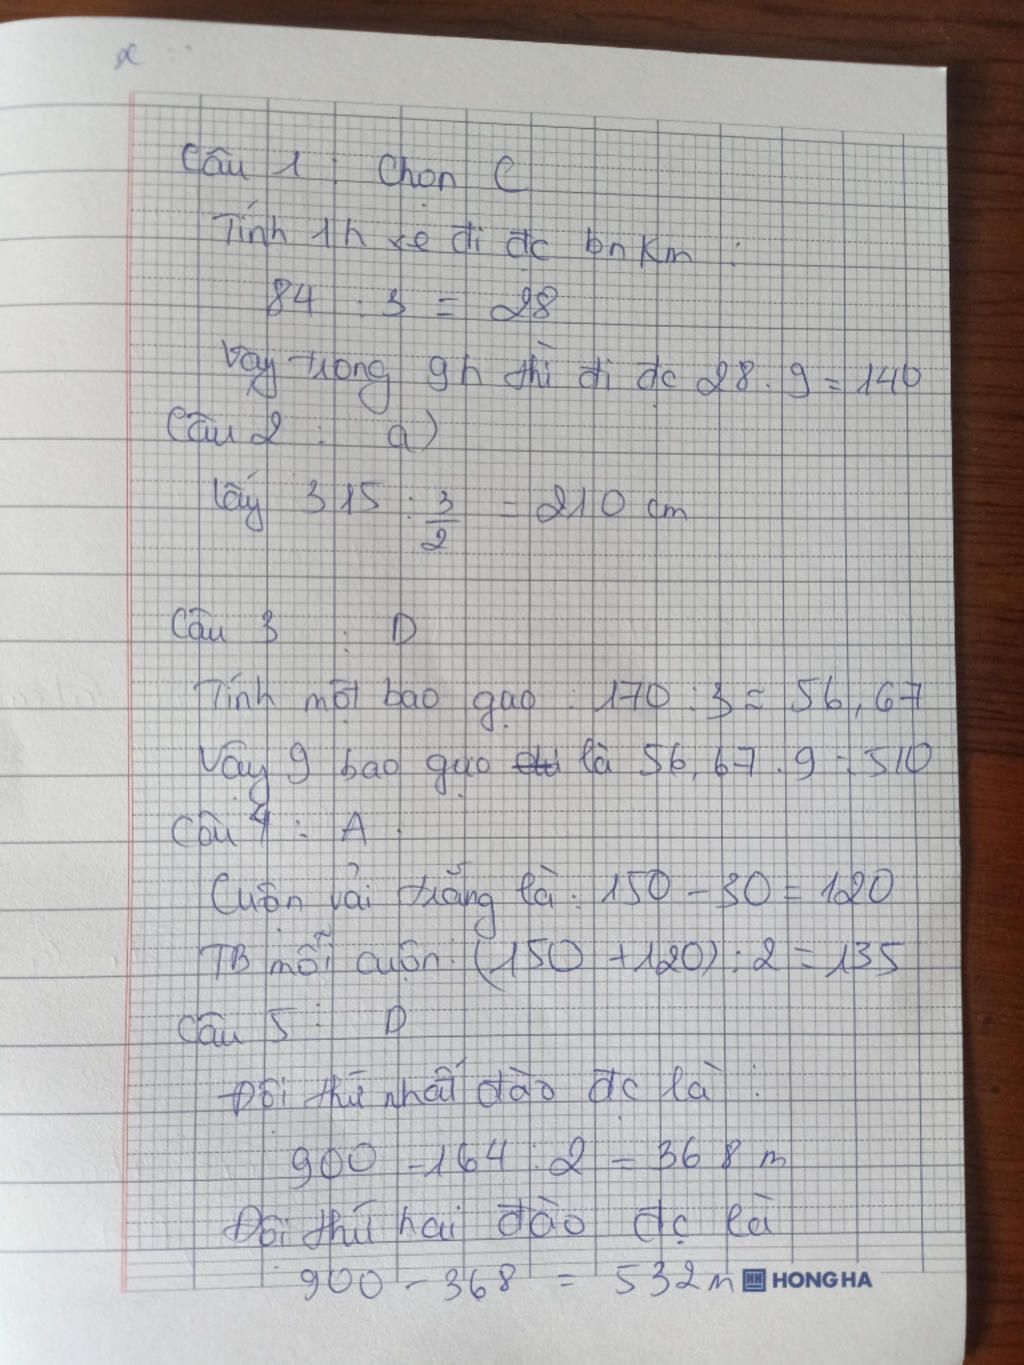 Câu 1 : Chọn C
Tính 1h xe đi đc bn Km :
84 : 3 = 28
Vậy trong 9h thì đi đc 28 . 9 = 140
Câu 2 : a)
lấy 315 : 3/2 = 210 cm
Câu 3 : D
Tính một bao gạo : 170 : 3 = 56,67
Vậy 9 bao gạo là 56,67 . 9 = 510
Câu 4 : A .
Cuộn vải trắng là : 150 - 30 = 120
TB mỗi cuộn : (150 + 120) : 2 = 135
Câu 5 : D
Đội thứ nhất đào đc là :
900 - 164 : 2 = 368 m
Đội thứ hai đào đc là
900 - 368 = 532 m
HONG HA